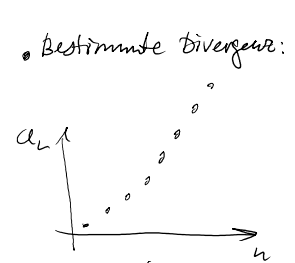 • Bestimmte Divergenz:
aₙ
n